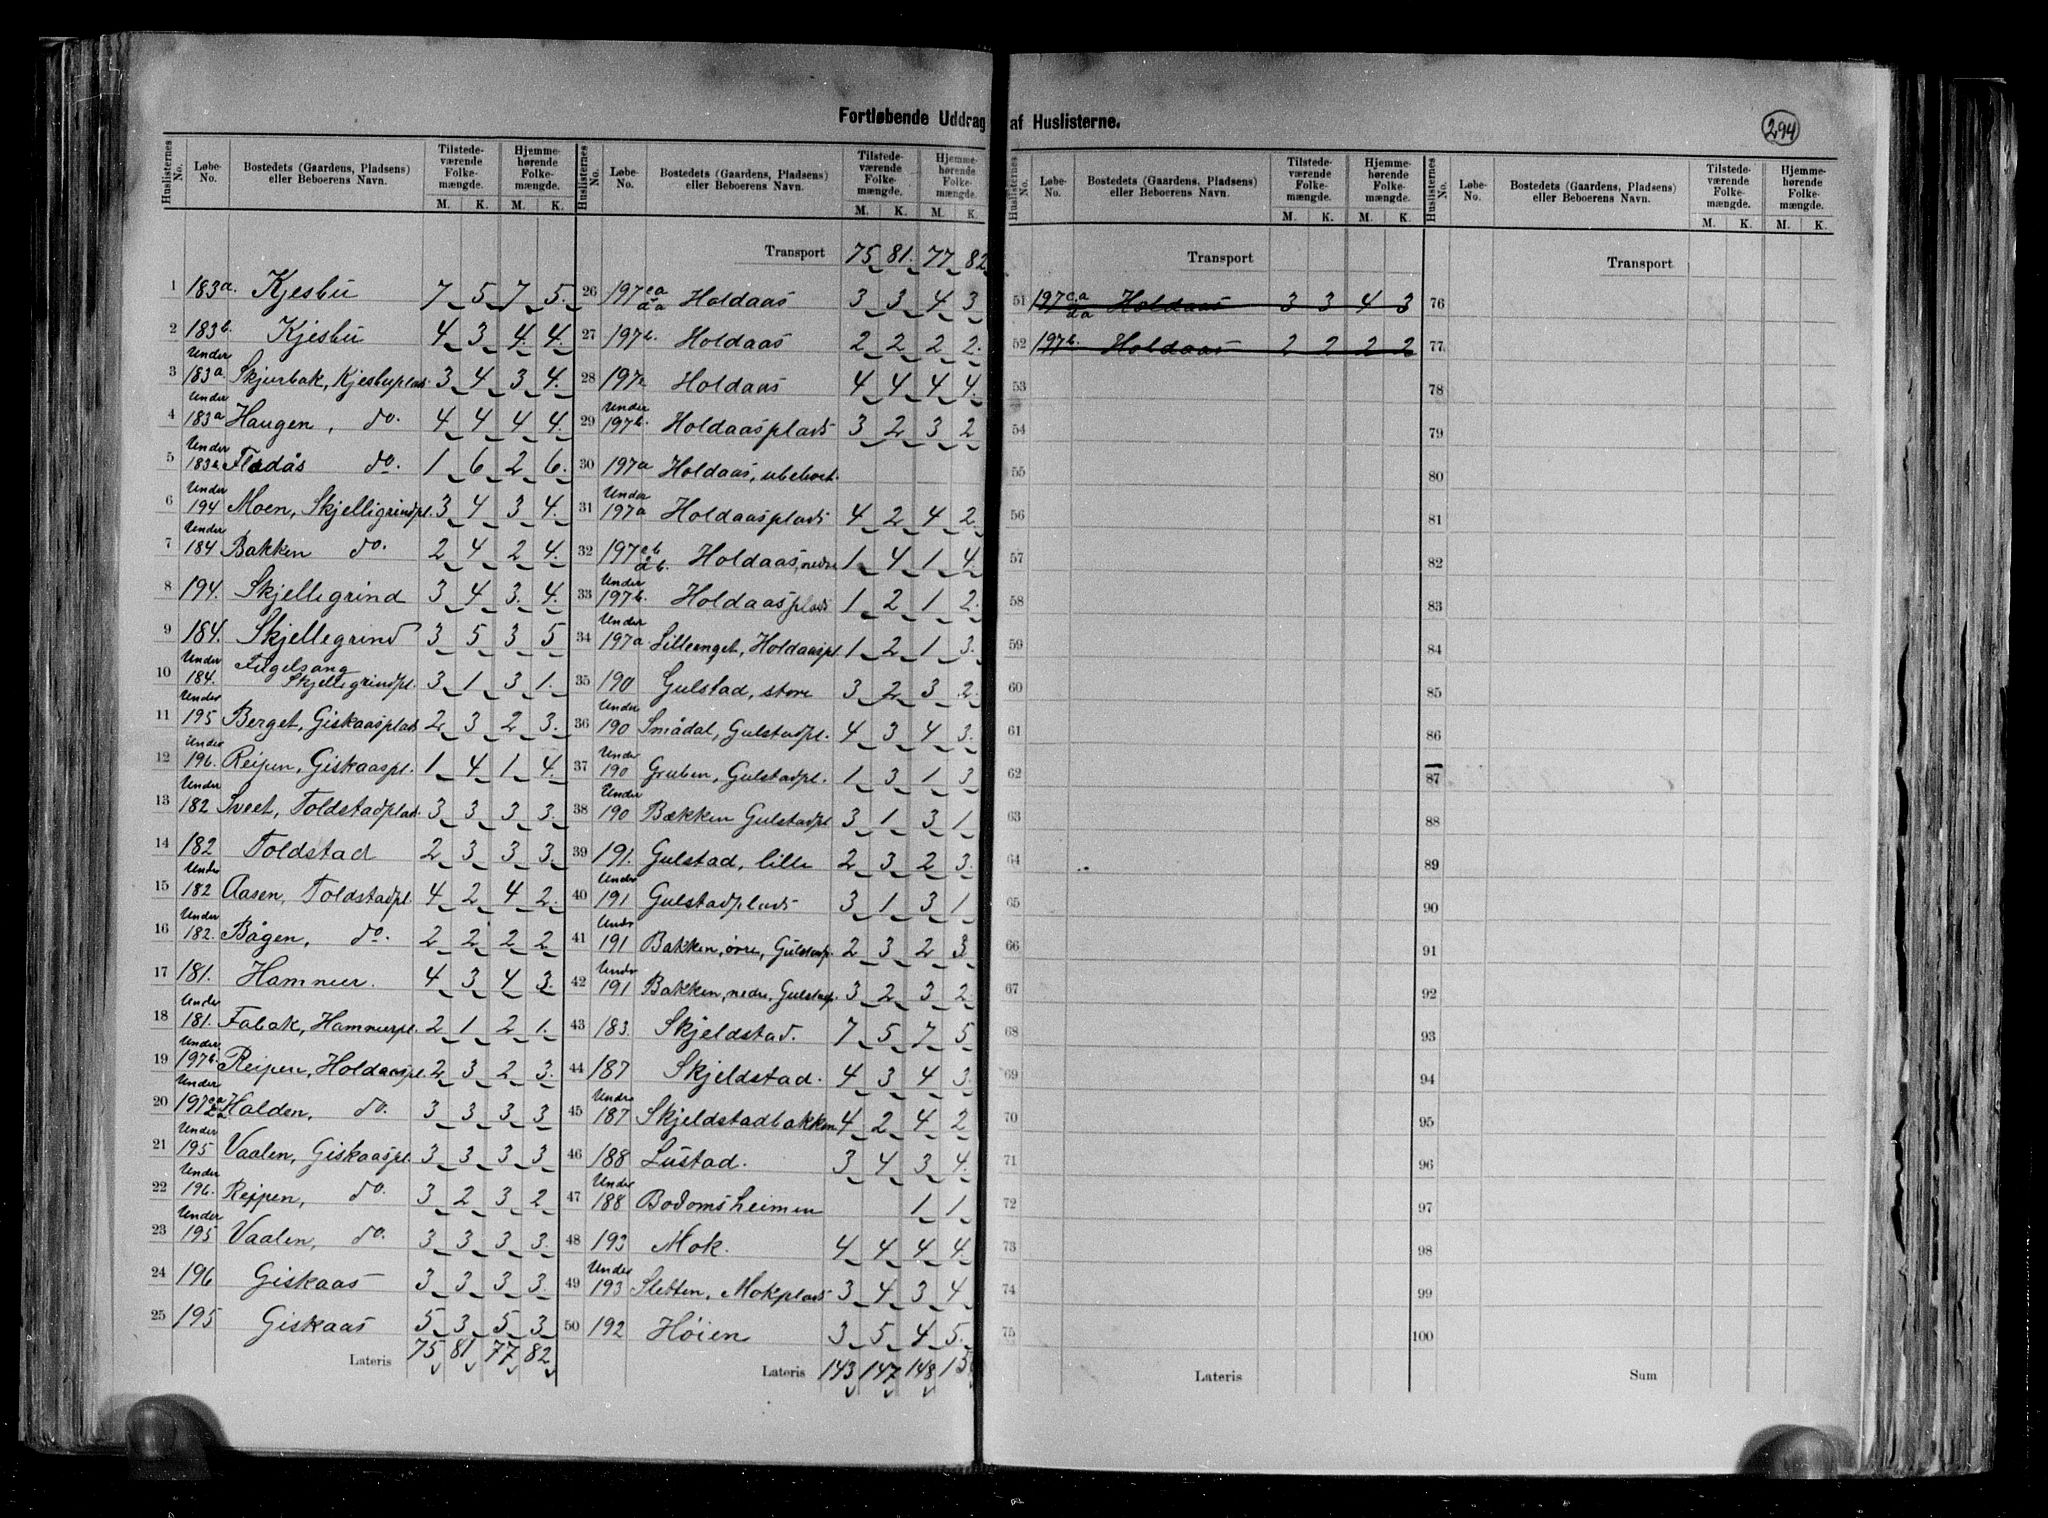 Fortløbende Uddrag af Huslisterne.
294
Huslisternes No. | Løbe-No. | Bostedets (Gaardens, Pladsens) eller Beboerens Navn. | Tilstedeværende Folkemængde. M. K. | Hjemmehørende Folkemængde. M. K.
1 183a. Kjesbu 7 5 7 5.
2 183b. Kjesbu 4 3 4 4.
3 Under 183a Skjurbak, Kjesbuplads 3 4 3 4.
4 Under 183a Haugen, do. 4 4 4 4.
5 Under 183a Flødås do. 1 6 2 6.
6 Under 194 Moen, Skjelligrindpl. 3 4 3 4.
7 Under 184 Bakken do. 2 4 2 4.
8 194. Skjellegrind 3 4 3 4.
9 184. Skjellegrind 3 5 3 5
10 Under 184. Fugelsang Skjellegrindpl. 3 1 3 1.
11 Under 195 Berget, Giskaasplads 2 3 2 3.
12 Under 196. Reipen, Giskaaspl. 1 4 1 4.
13 Under 182 Sveet, Toldstadplad. 3 3 3 3.
14 182 Toldstad 2 3 3 3.
15 Under 182 Aasen, Toldstadpl. 4 2 4 2.
16 Under 182. Bågen, do. 2 2 2 2
17 181. Hammer. 4 3 4 3.
18 Under 181. Fabak, Hammerpl. 2 1 2 1.
19 Under 197b. Reipen, Holdaaspl. 2 3 2 3.
20 Under 197 Halden, do. 3 3 3 3
21 Under 195 Vaalen, Giskaaspl. 3 3 3 3
22 Under 196. Reppen, do. 3 2 3 2
23 Under 195 Vaalen, do. 3 3 3 3.
24 196 Giskaas 3 3 3 3.
25 195 Giskaas 5 3 5 3
Lateris 75 81 77 82
Huslisternes No. | Løbe-No. | Bostedets (Gaardens, Pladsens) eller Beboerens Navn. | Tilstedeværende Folkemængde. M. K. | Hjemmehørende Folkemængde. M. K.
Transport 75 81. 77 82
26 197 ca da Holdaas 3 3 4 3
27 197b. Holdaas 2 2 2 2.
28 197a Holdaas 4 4 4 4.
29 Under 197b. Holdaasplads 3 2 3 2
30 197a Holdaas, ubeboet.
31 Under 197a Holdaasplads 4 2 4 2.
32 197 cb db. Holdaas, nedre 1 4 1 4.
33 Under 197b. Holdaasplads 1 2 1 2.
34 Under 197a. Lilleenget, Holdaaspl. 1 2 1 3.
35 190 Gulstad, store 3 2 3 2.
36 Under 190 Smådal, Gulstadpl. 4 3 4 3.
37 Under 190 Gruben, Gulstadpl. 1 3 1 3
38 Under 190 Bækken Gulstadpl 3 1 3 1
39 191. Gulstad, lille 2 3 2 3.
40 Under 191 Gulstadplads 3 1 3 1
41 Under 191 Bakken, øvre, Gulstadp. 2 3 2 3
42 Under 191 Bakken, nedre, Gulstadp. 3 2 3 2
43 183. Skjeldstad. 7 5 7 5
44 187 Skjeldstad. 4 3 4 3.
45 Under 187 Skjeldstadbakken 4 2 4 2
46 188 Lustad. 3 4 3 4.
47 Under 188 Bodomsheimen 1 1
48 193 Mok. 4 4 4 4.
49 Under 193 Sletten, Mokplads 3 4 3 4
50 192 Høien 3 5 4 5.
Lateris 143 147 148 15
Huslisternes No. | Løbe-No. | Bostedets (Gaardens, Pladsens) eller Beboerens Navn. | Tilstedeværende Folkemængde. M. K. | Hjemmehørende Folkemængde. M. K.
Transport
51 197 c.a da Holdaas 3 3 4 3
52 197b. Holdaas 2 2 2 2
53
54
55
56
57
58
59
60
61
62
63
64
65
66
67
68
69
70
71
72
73
74
75
Lateris
Huslisternes No. | Løbe-No. | Bostedets (Gaardens, Pladsens) eller Beboerens Navn. | Tilstedeværende Folkemængde. M. K. | Hjemmehørende Folkemængde. M. K.
Transport
76
77
78
79
80
81
82
83
84
85
86
87
88
89
90
91
92
93
94
95
96
97
98
99
100
Sum